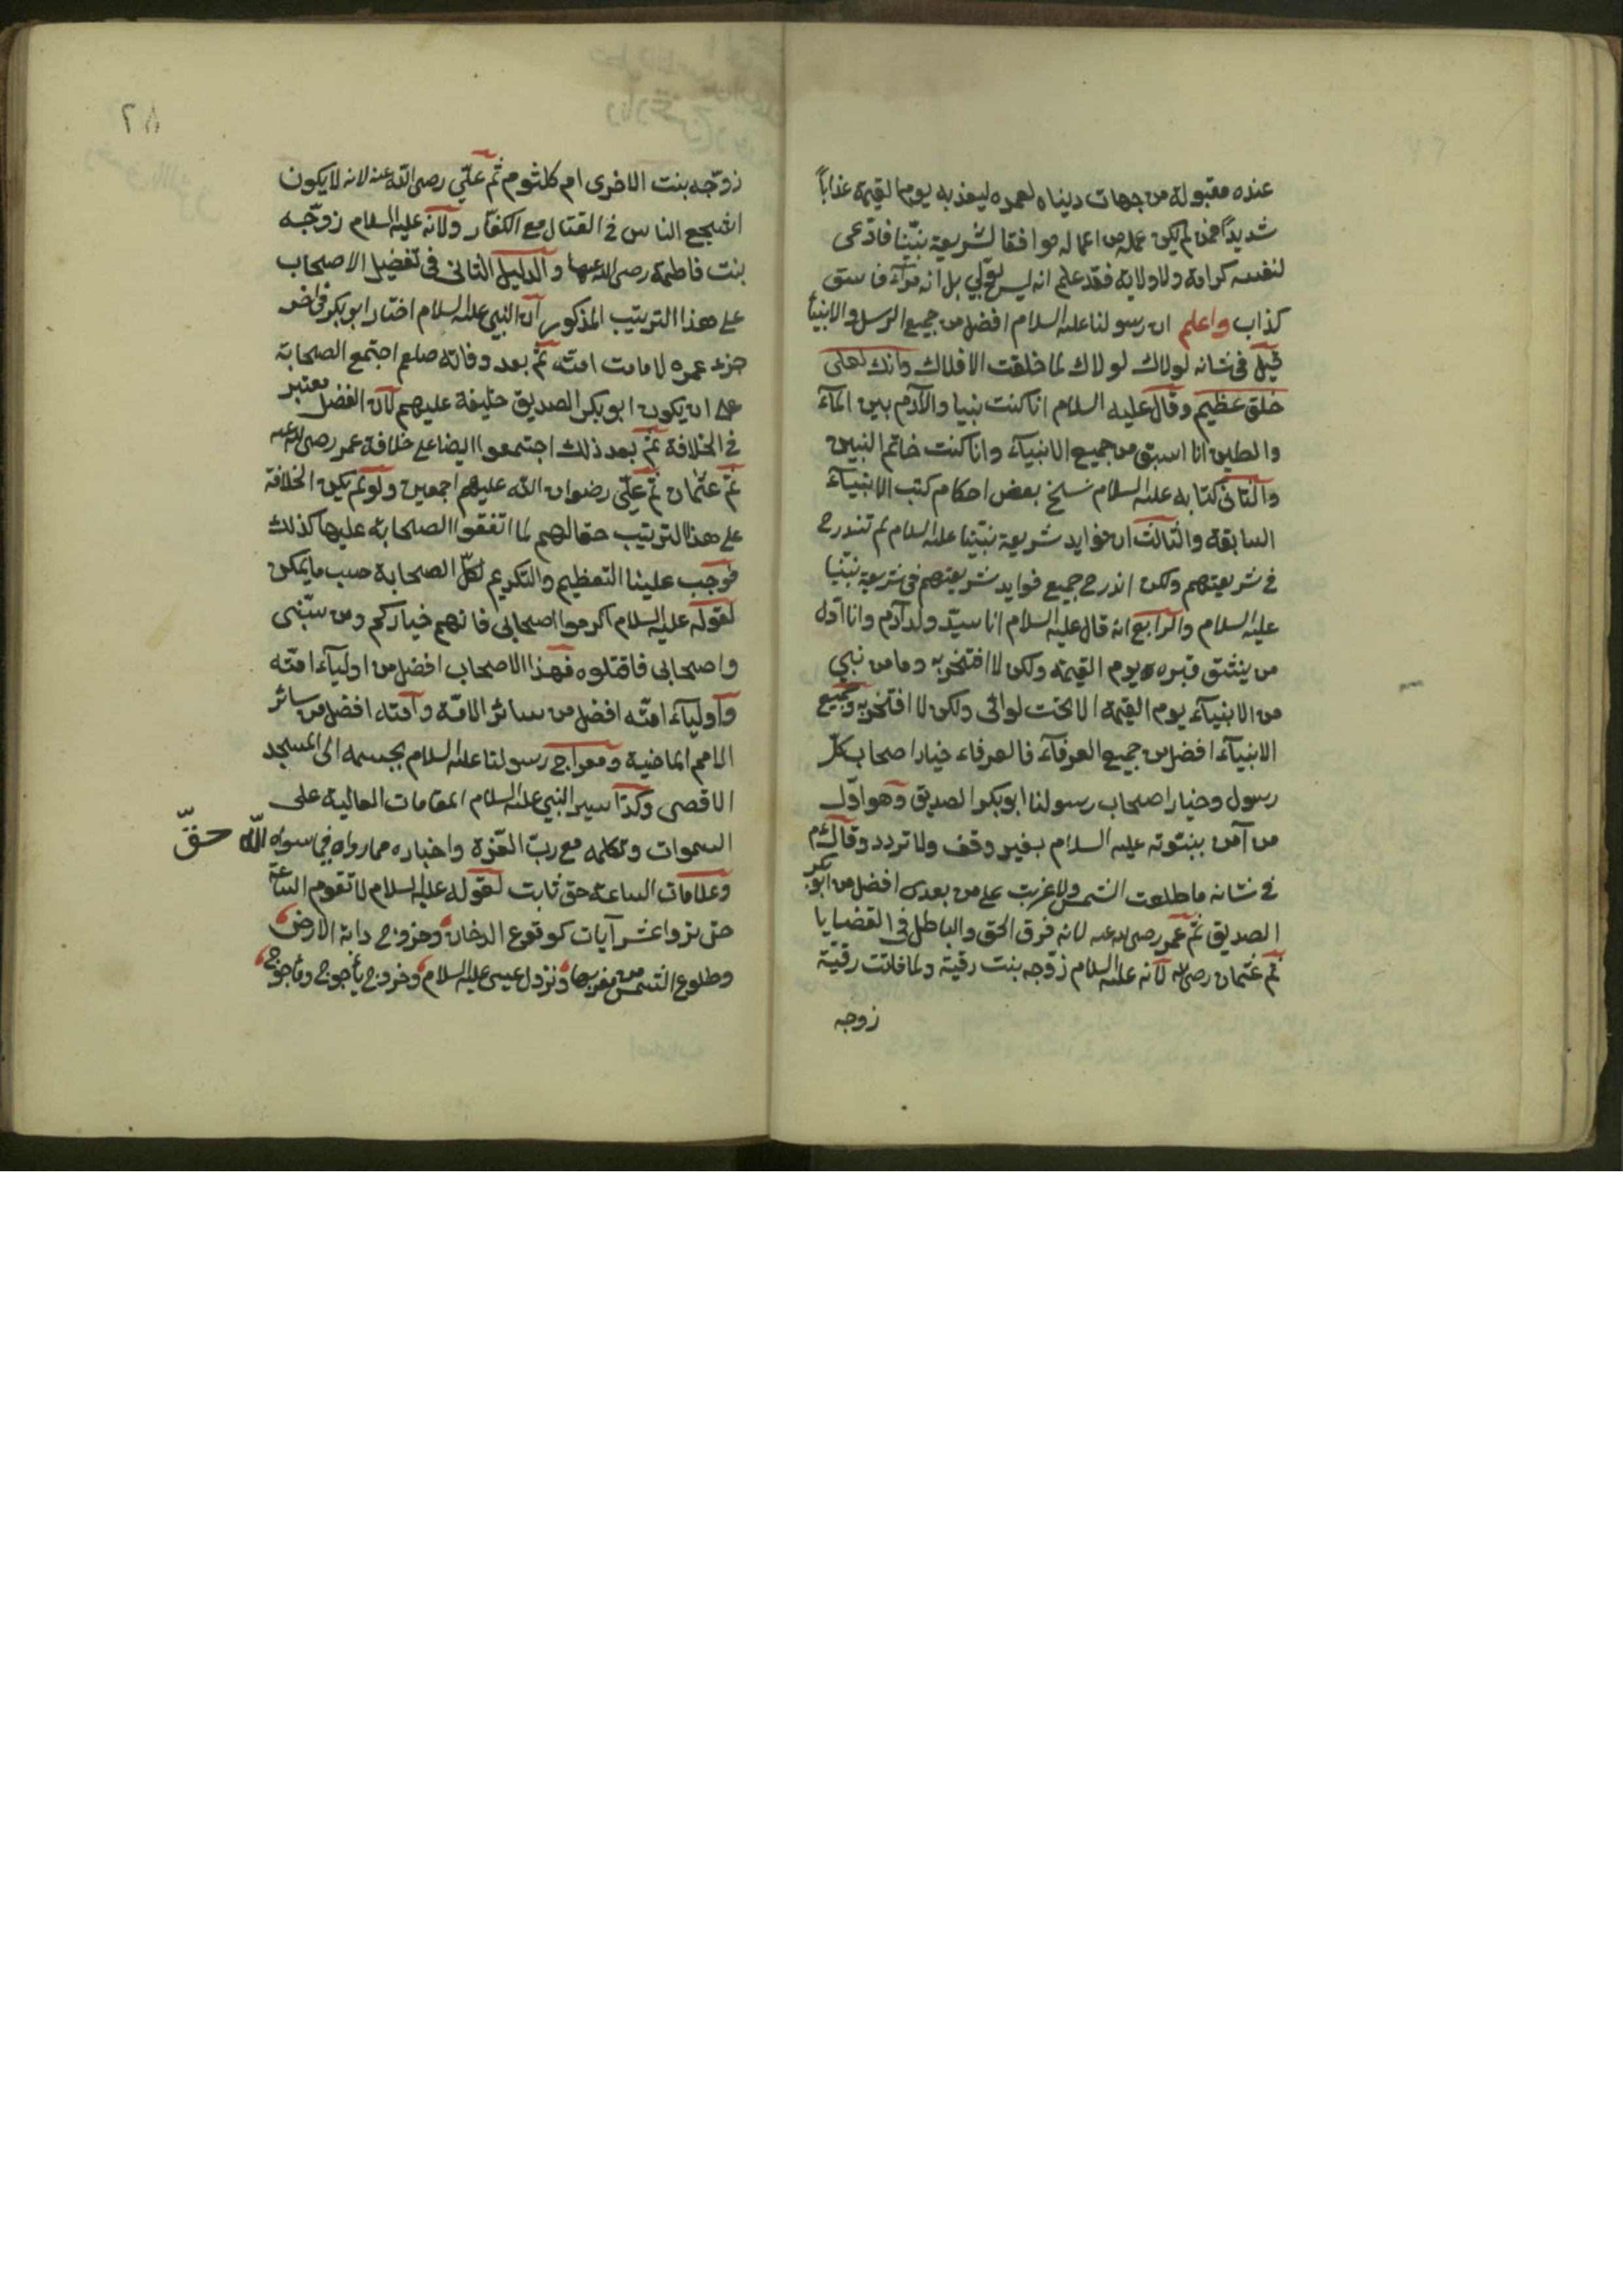 عنده مقبولة من جهات دنياه لعمره ليعذبه يوم القيمة عذاباً
شديداً فمن لم يكن عمله من اعماله موافقا لشريعة نبيّنا فادّعى
لنفسه كرامة ولا ولاية فقد علم انه ليس بولي بل انه مرآء فاسق
كذاب واعلم ان رسولنا عليه السلام افضل من جميع الرسل والانبيآء
قيل فى شانه لولاك لولاك لما خلقت الافلاك وانك لعلى
خلق عظيم وقال عليه السلام انا كنت نبيا والآدم بين المآء
والطين انا اسبق من جميع الانبيآء وانا كنت خاتم النبين
والثانى كتابه عليه السلام نسخ بعض احكام كتب الانبيآء
السابقة والثالث ان فوايد شريعة نبيّنا عليه السلام لم تندرج
فى شريعتهم ولكن اندرج جميع فوايد شريعتهم فى شريعة نبيّنا
عليه السلام والرابع انه قال عليه السلام انا سيّد ولد آدم وانا اوّل
من ينشق قبره يوم القيمة ولكن لا افتخر به وما من نبي
من الانبيآء يوم القيمة الا تحت لوائى ولكن لا افتخر به وجميع
الانبيآء افضل من جميع العرفآء فالعرفاء خيار اصحاب كلّ
رسول وخيار اصحاب رسولنا ابو بكر الصديق وهو اوّل
من آمن بنبوّته عليه السلام بغير وقف ولا تردد وقال عم
فى شانه ما طلعت الشمس ولا غربت على من بعدى افضل من ابو بكر
الصديق ثمّ عمر رضى الله عنه لانه فرق الحق والباطل فى القضايا
ثم عثمان رضى الله لانه عليه السلام زوّجه بنت رقية ولما فاتت رقيّة
زوجه
٢٨
زوّجه بنت الاخرى ام كلثوم ثمّ علّي رضى الله عنه لانه لا يكون
اشجع الناس فى القتال مع الكفّار ولانه عليه السلام زوّجه
بنت فاطمة رضى الله عنها والدليل الثانى فى تفضيل الاصحاب
على هذا الترتيب المذكور ان النبي عليه السلام اختار ابو بكر فى اخر
جزء عمره لامامت امته ثمّ بعد وفاته صلعم اجتمع الصحابة
على ان يكون ابو بكر الصديق خليفة عليهم لان الفضل معتبر
فى الخلافة ثمّ بعد ذلك اجتمعوا ايضا على خلافة عمر رضى الله عنه
ثمّ عثمان ثمّ علّي رضوان الله عليهم اجمعين ولو لم يكن الخلافة
على هذا الترتيب حقا لهم لما اتفقوا الصحابة عليها كذلك
فوجب علينا التعظيم والتكريم لكلّ الصحابة حسب ما يمكن
لقوله عليه السلام اكرموا اصحابى فانهم خياركم ومن سبّنى
واصحابى فاقتلوه فهذا الاصحاب افضل من اوليآء امّته
واوليآء امّته افضل من سائر الامّة وامّته افضل من سائر
الامم الماضية ومعراج رسولنا عليه السلام بجسمه الى المسجد
الاقصى وكذا سير النبي عليه السلام المقامات العالية على
السموات وتكلمه مع ربّ العزة واخباره مما رواه فى سواه اللّه حقّ
وعلامات الساعة حق ثابت لقوله عليه السلام لا تقوم الساعة
حتى تروا عشر آيات كوقوع الدخان وخروج دابة الارض
وطلوع الشمس من مغربها ونزول عيسى عليه السلام وخروج يأجوج ومأجوج